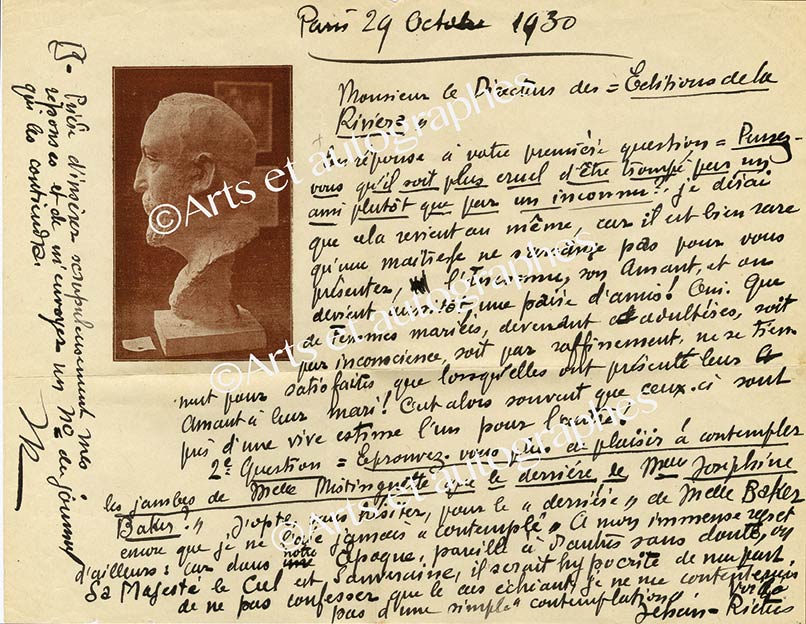 Paris 29 Octobre 1930
Monsieur le Directeur des = Editions de la
Riviera "
En réponse à votre première question = Pensez-
vous qu'il soit plus cruel d'être trompé par un
ami plutôt que par un inconnu? je dirai
que cela revient au même, car il est bien rare
qu'une maîtresse ne s'arrange pas pour vous
présenter, l'Inconnu, son Amant, et on
devient aussitôt, une paire d'amis! Oui. Que
de femmes mariées, devenant adultères, soit
par inconscience, soit par raffinement, ne se tien-
nent pour satisfaites que lorsqu'elles ont présenté leur
Amant à leur mari! C'est alors souvent que ceux-ci sont
pris d'une vive estime l'un pour l'autre!
2e Question = Eprouvez-vous plus de plaisir à contempler
les jambes de Melle Mistinguett que le derrière de Melle Joséphine
Baker?" J'opte, sans hésiter, pour le "derrière" de Melle Baker
encore que je ne l'aie jamais "contemplé" A mon immense regret
d'ailleurs: car dans notre Epoque, pareille à d'autres sans doute, où
Sa Majesté le Cul est Souveraine, il serait hypocrite de ma part
de ne pas confesser que le cas échéant je ne me contenterais
pas d'une simple "contemplation" Voilà
Jehan-Rictus
PS- Prière d'insérer scrupuleusement mes
réponses et de m'envoyer un No du journal
qui les contiendra.
JR
©Arts et autographes
©Arts et autographes
©Arts et autographes